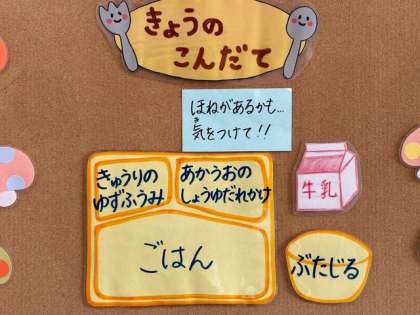 きょうの
こんだて
ほねがあるかも…
気をつけて!!
き
きゅうりの
ゆずふうみ
あかうおの
しょうゆだれかけ
牛乳
ごはん
ぶたじる